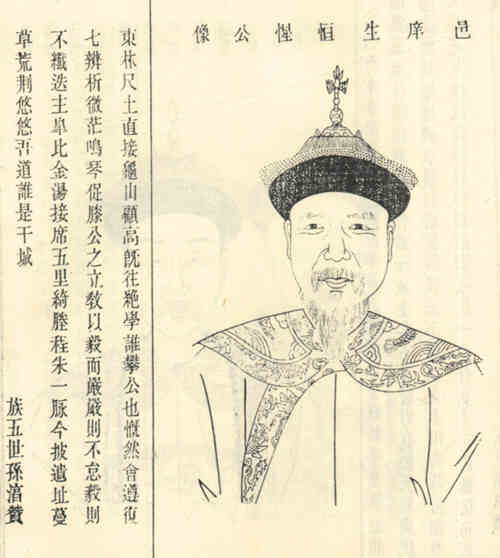 邑庠生恒惺公像
東林尺土直接龜山顧高旣往絶學誰攀公也慨然會遵復
七辨析微茫鳴琴促膝公之立敎以毅而嚴嚴則不怠毅則
不纖迭主皐比金湯接席五里綺塍程朱一脈今披遺址蔓
草荒荆悠悠吾道誰是干城
族五世孫贊